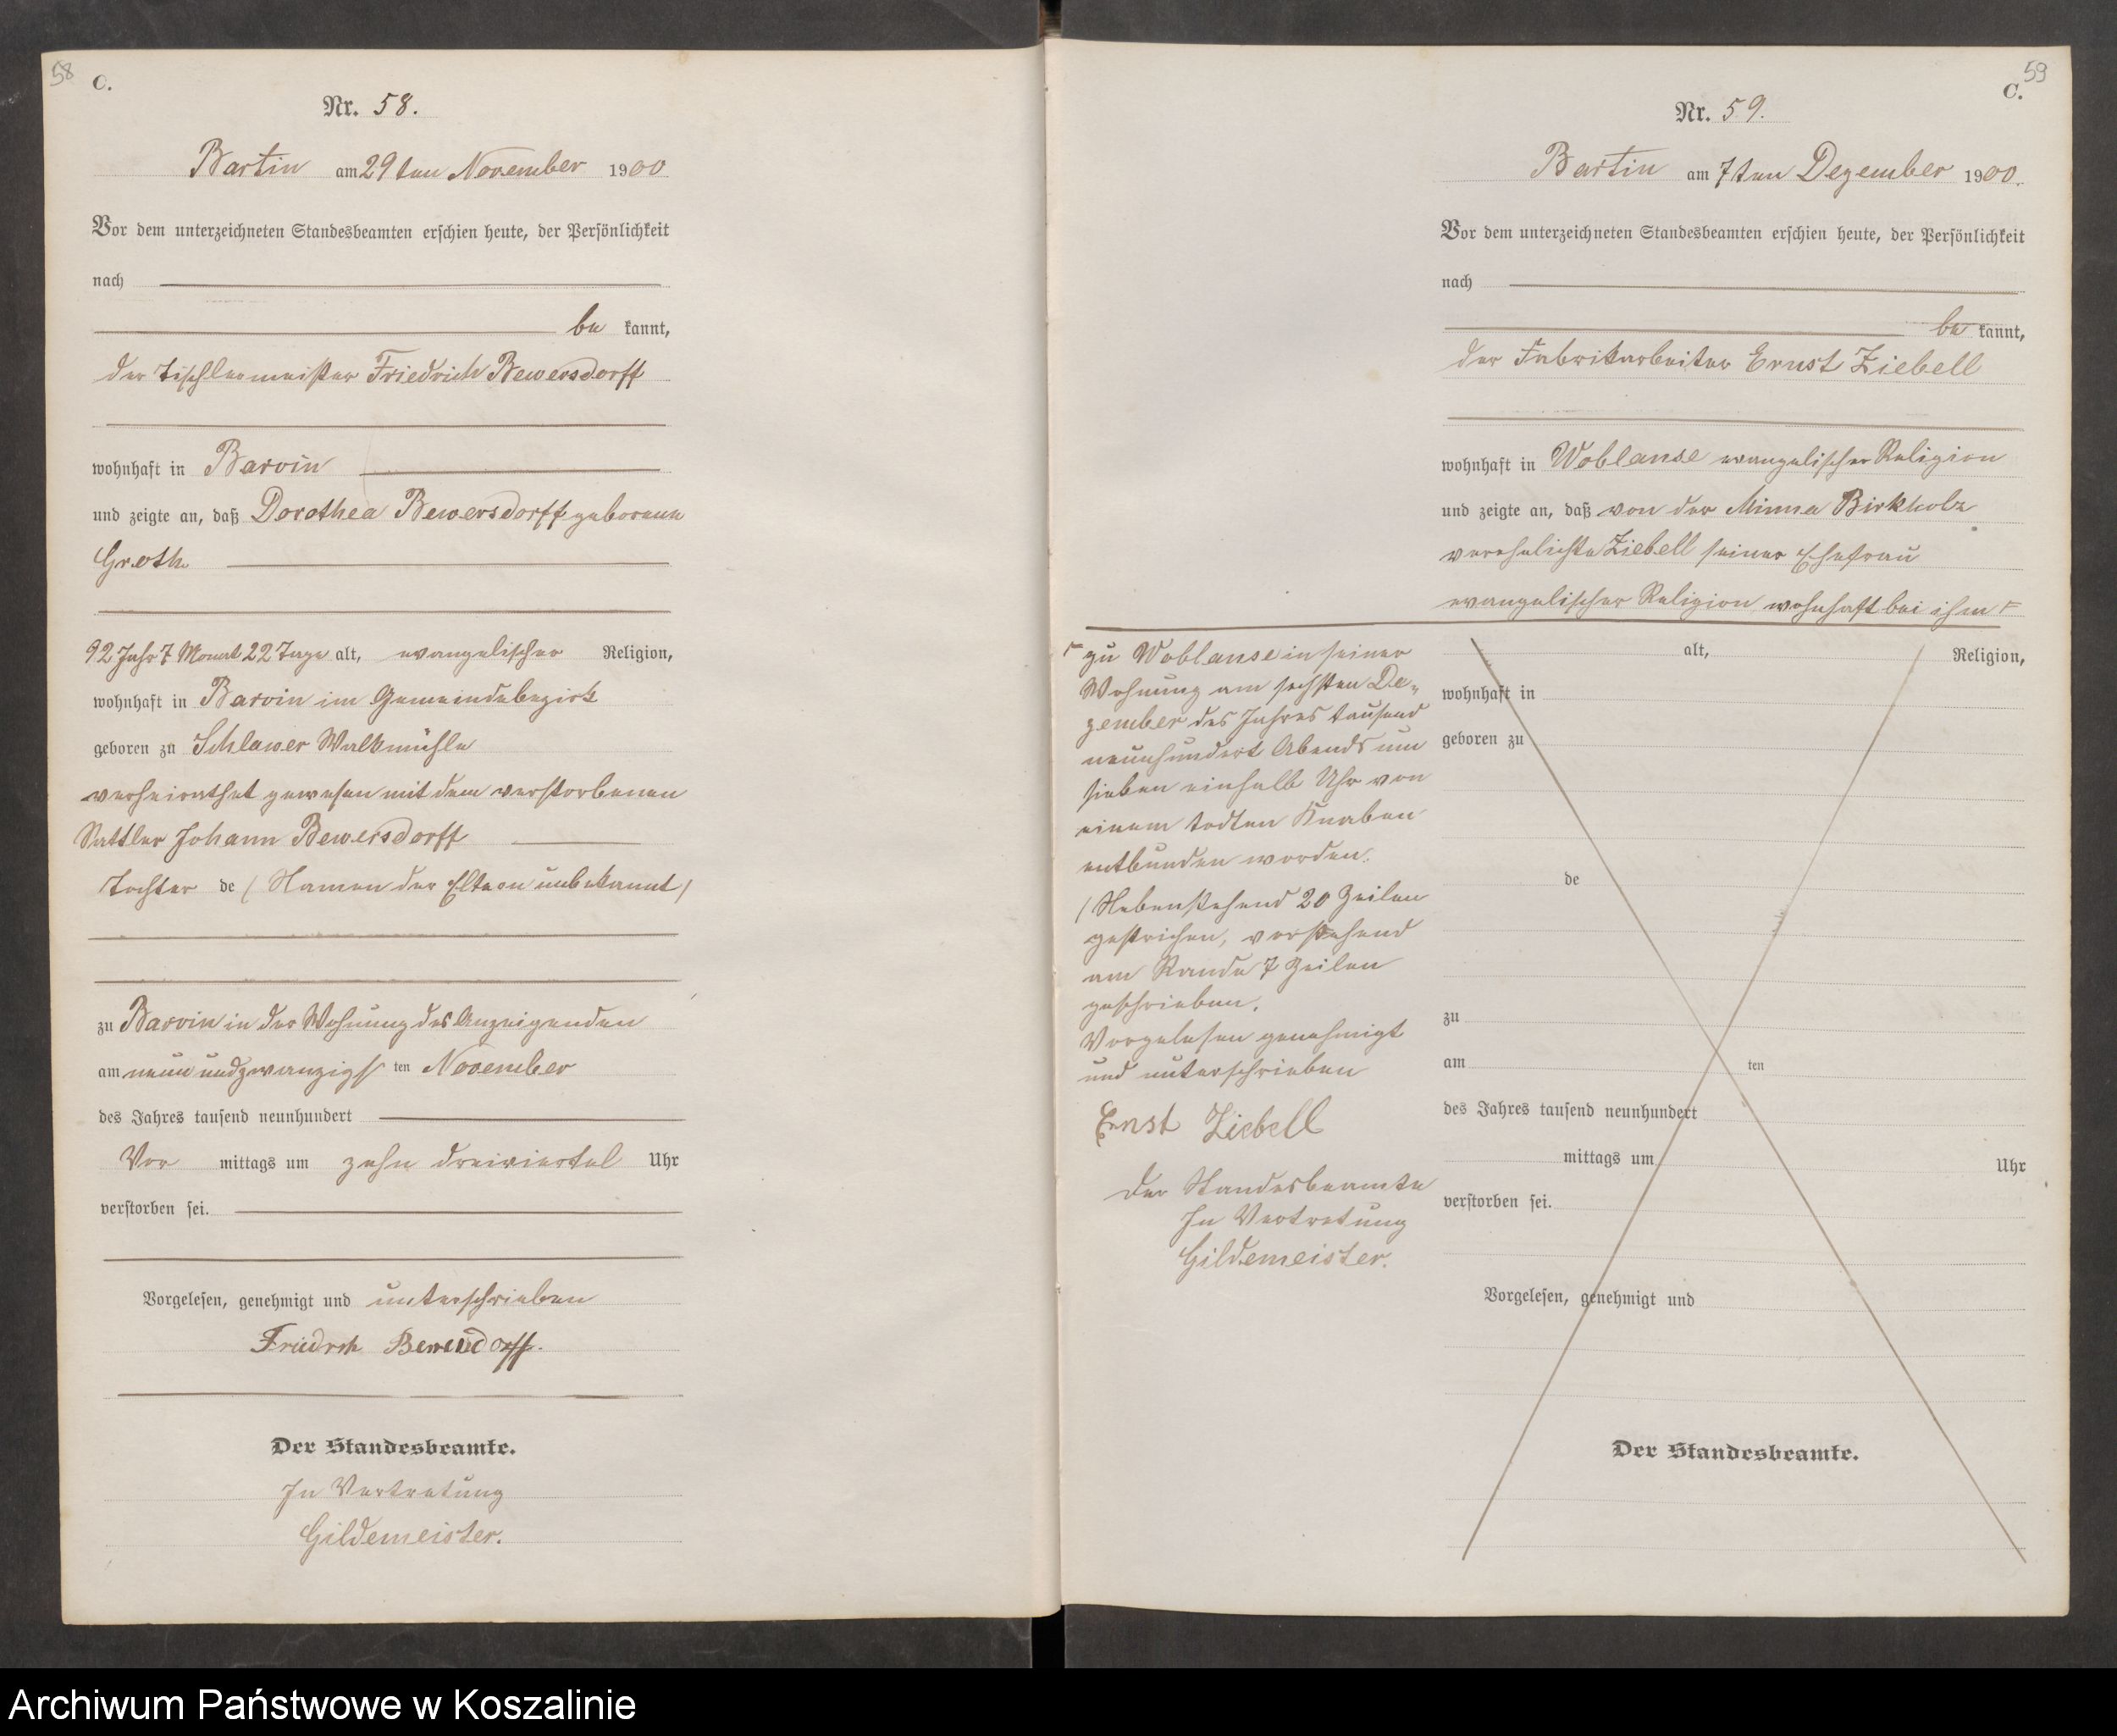 58
C.
Nr. 58.
Bartin am 29 ten November 1900
Vor dem unterzeichneten Standesbeamten erschien heute, der Persönlichkeit
nach
be kannt,
der Tischlermeister Friedrich Bewersdorff
wohnhaft in Barvin
und zeigte an, daß Dorothea Bewersdorff geborene
Groth
92 Jahr 7 Monat 22 Tage alt, evangelischer Religion,
wohnhaft in Barvin im Gemeindebezirk
geboren zu Schlawer Walkmühle
verheirathet gewesen mit dem verstorbenen
Sattler Johann Bewersdorff
Tochter de (Namen der Eltern unbekannt)
zu Barvin in der Wohnung des Anzeigenden
am neunundzwanzigs ten November
des Jahres tausend neunhundert
Vor mittags um zehn dreiviertel Uhr
verstorben sei.
Vorgelesen, genehmigt und unterschrieben
Friedrch Bewersdorff.
Der Standesbeamte.
In Vertretung
Gildemeister.
59
C.
Nr. 59.
Bartin am 7 ten Dezember 1900.
Vor dem unterzeichneten Standesbeamten erschien heute, der Persönlichkeit
nach
be kannt,
der Fabrikarbeiter Ernst Ziebell
wohnhaft in Woblanse evangelischer Religion
und zeigte an, daß von der Minna Birkholz
verehelichte Ziebell seiner Ehefrau
evangelischer Religion, wohnhaft bei ihm
zu Woblanse in seiner
Wohnung am sechsten De-
zember des Jahres tausend
neunhundert Abends um
sieben einhalb Uhr von
einem todten Knaben
entbunden worden.
(Nebenstehend 20 Zeilen
gestrichen, vorstehend
am Rande 7 Zeilen
geschrieben.
Vorgelesen genehmigt
und unterschrieben
Ernst Ziebell
Der Standesbeamte
In Vertretung
Gildemeister.
alt, Religion,
wohnhaft in
geboren zu
de
zu
am ten
des Jahres tausend neunhundert
mittags um Uhr
verstorben sei.
Vorgelesen, genehmigt und
Der Standesbeamte.
Archiwum Państwowe w Koszalinie